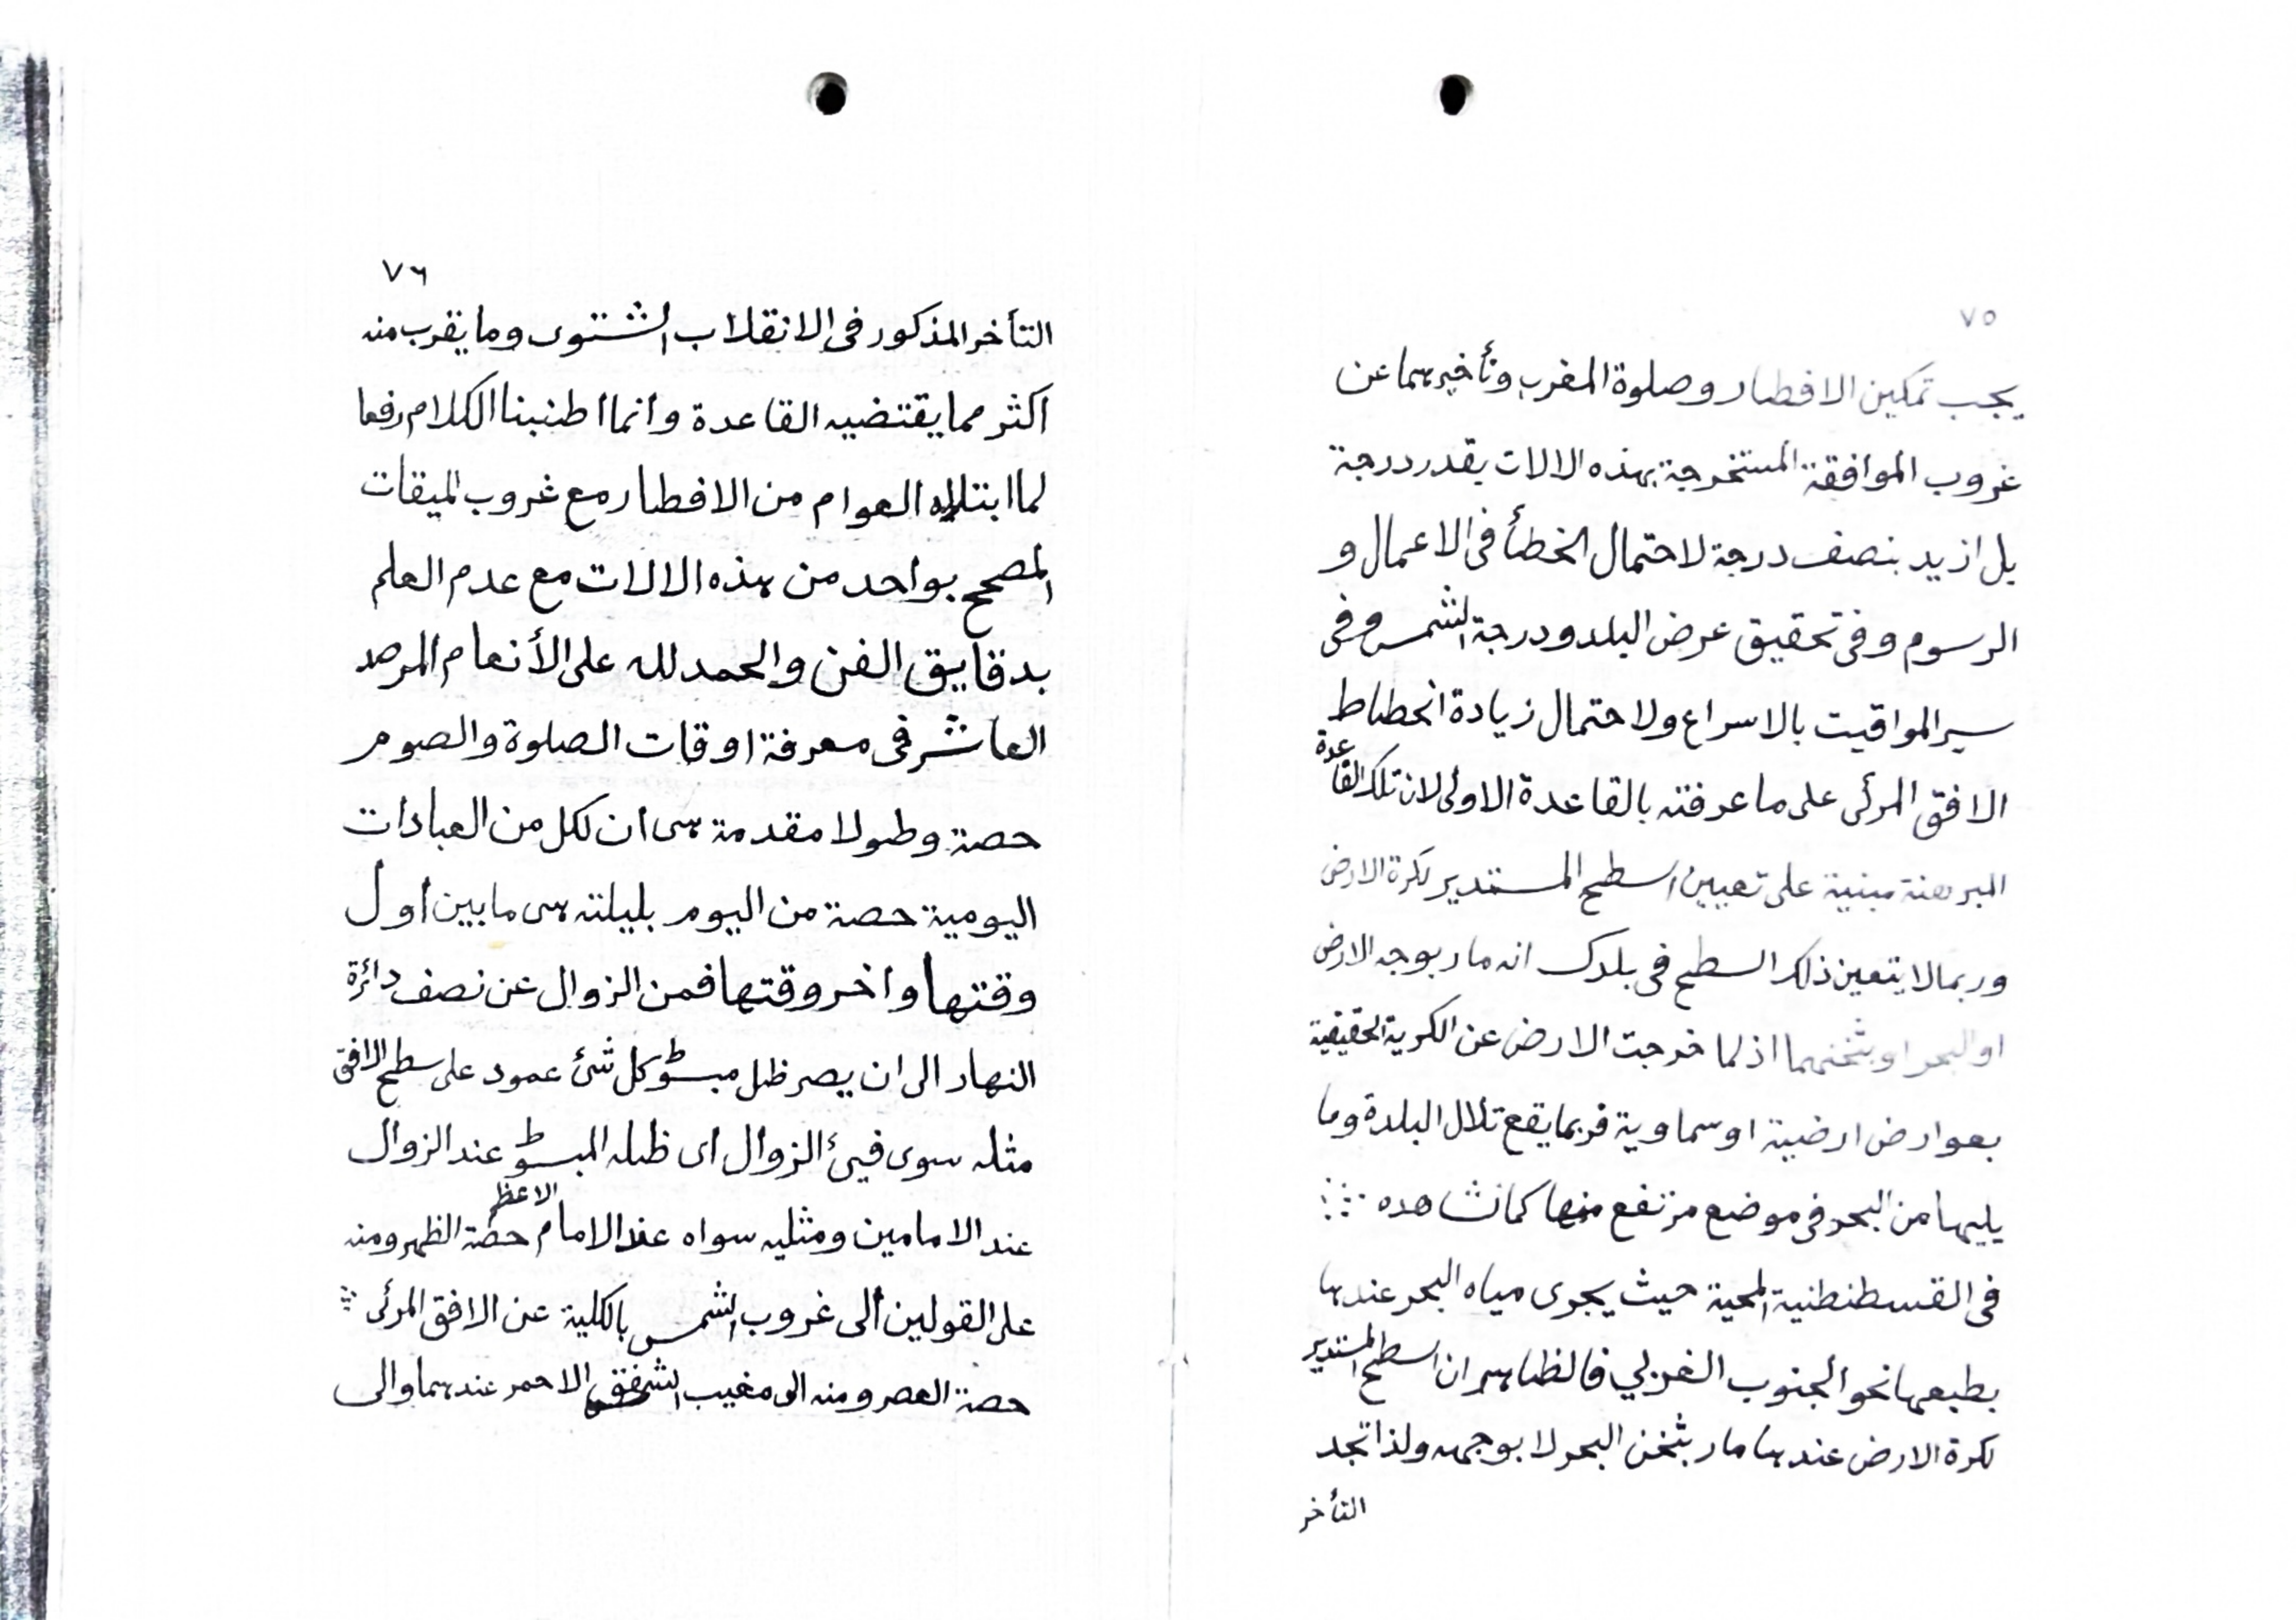 ٧٥
يجب تمكين الافطار وصلوة المغرب وتأخيرهما عن
غروب الموافقة المستخرجة بهذه الالات بقدر درجة
بل ازيد بنصف درجة لاحتمال الخطأ فى الاعمال و
الرسوم وفى تحقيق عرض البلد ودرجة الشمس وفى
سير المواقيت بالاسراع ولاحتمال زيادة انحطاط
الافق المرئى على ما عرفته بالقاعدة الاولى لان تلك القاعدة
المبرهنة مبنية على تعيين اسطح المستدير لكرة الارض
وربما لا يتعين ذلك السطح فى بلدك انه مار بوجه الارض
او البحر او بثخنهما اذ لما خرجت الارض عن الكرية الحقيقية
بعوارض ارضية او سماوية فربما يقع تلال البلدة وما
يليها من البحر فى موضع مرتفع منها كما نشاهده
فى القسطنطنية المحمية حيث يجرى مياه البحر عندها
بطبعها نحو الجنوب الغربي فالظاهر ان اسطح المستدير
لكرة الارض عندها مار بثخن البحر لا بوجهه ولذا تجد
التأخر
٧٦
التأخر المذكور فى الانقلاب الشتوى وما يقرب منه
اكثر مما يقتضيه القاعدة وانما اطنبنا الكلام رفعا
لما ابتلاه العوام من الافطار مع غروب الميقات
المصحح بواحد من هذه الالات مع عدم العلم
بدقايق الفن والحمد لله على الأنعام المرصد
العاشر فى معرفة اوقات الصلوة والصوم
حصة وطولا مقدمة هى ان لكل من العبادات
اليومية حصة من اليوم بليلته هى ما بين أول
وقتها واخر وقتها فمن الزوال عن نصف دائرة
النهار الى ان يصر ظل مبسوط كل شئ عمود على سطح الافق
مثله سوى فيئ الزوال اى ظله المبسوط عند الزوال
عند الامامين ومثليه سواه عند الامام الاعظم حصة الظهر ومنه
على القولين ألى غروب الشمس بالكلية عن الافق المرئى
حصة العصر ومنه الى مغيب الشفق الاحمر عندهما والى